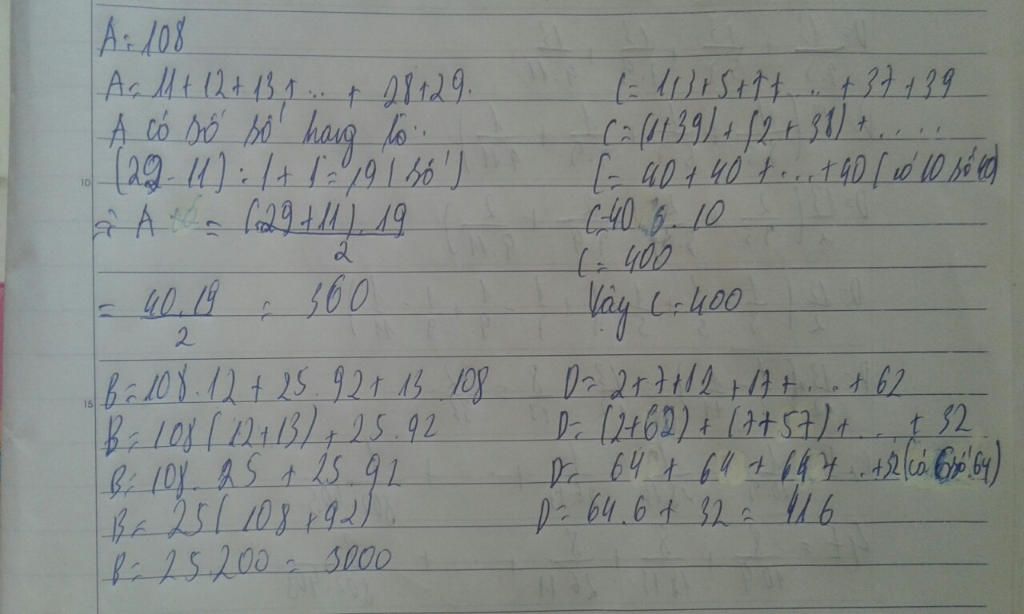 A = 108
A = 11 + 12 + 13 + ... + 28 + 29.
A có số số hạng là:
(29 - 11) : 1 + 1 = 19 (số)
⇒ A = (29 + 11) . 19 / 2
= 40 . 19 / 2 = 360
B = 108 . 12 + 25 . 92 + 13 . 108
B = 108 (12 + 13) + 25 . 92
B = 108 . 25 + 25 . 92
B = 25 (108 + 92)
B = 25.200 = 5000
C = 1 + 3 + 5 + 7 + ... + 37 + 39
C = (1 + 39) + (2 + 38) + ....
C = 40 + 40 + ... + 40 (có 10 số 40)
C = 40 . 10
C = 400
Vậy C = 400
D = 2 + 7 + 12 + 17 + ... + 62
D = (2 + 62) + (7 + 57) + ... + 32
D = 64 + 64 + 64 + ... + 32 (có 6 số 64)
D = 64.6 + 32 = 416